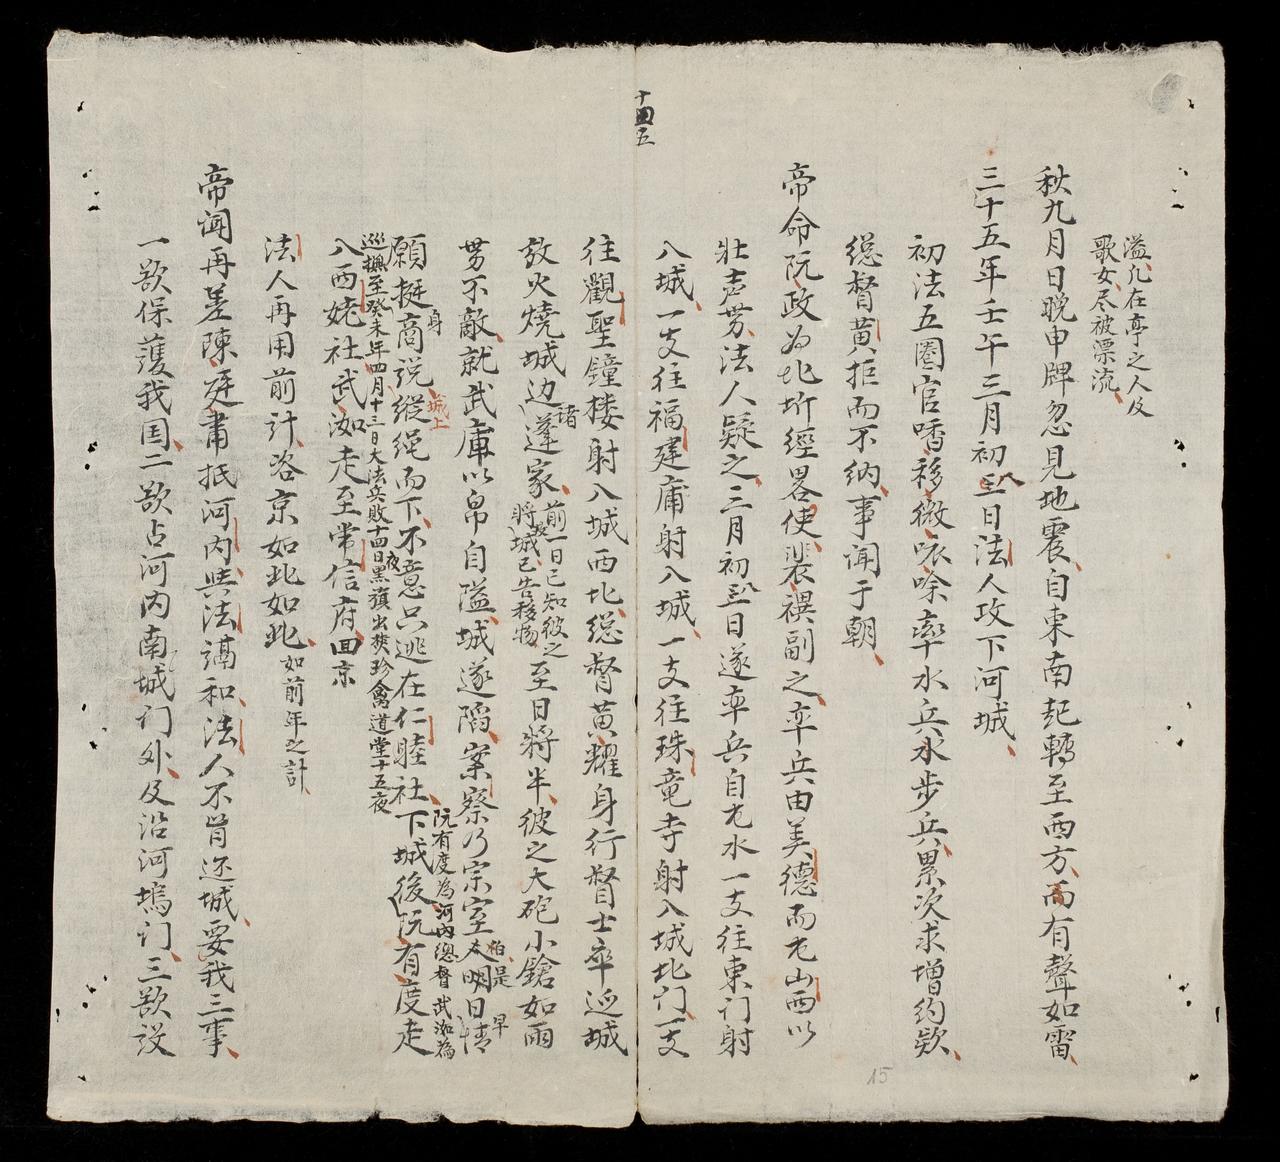 溢凡在亭之人及
歌女尽被漂流
秋九月日晚申牌忽見地震自東南起轉至西方而有聲如雷
三十五年壬午三月初八日法人攻下河城
初法五圈官唒移徵咴唋率水兵水步兵累次求增約欵
總督黄拒而不納事聞于朝
帝命阮政为北圻經畧使裴䙡副之率兵由美德而尤山西以
壮声势法人疑之三月初八日遂率兵自尤水一支往東门射
入城一支往福建庸射入城一支往珠竜寺射入城北门一支
往觀聖鐘楼射入城西北總督黄耀身行督士卒逥城
放火燒城边諸蓬家
前一日已知彼之
將城已告移物
至日將半彼之大砲小鎗如雨
势不敵就武庫以帛自隘城遂陷案察乃宗室栢是夫明日早情
願挺身商説城上縱繩而下不意只逃在仁睦社
阮有度為河内總督武泇為
巡撫至癸未年四月十三日大法兵敗十四日夜黑旗出揳珍禽道堂十五夜
下城後阮有度走
八西姥社武泇走至常信府回京
法人再用前計咨京如此如此
如前年之計
帝闻再差陳廷肅抵河内與法講和法人不肯还城要我三事
一欲保護我国二欲占河内南城门外及沿河塢门三欲設
十四五
15